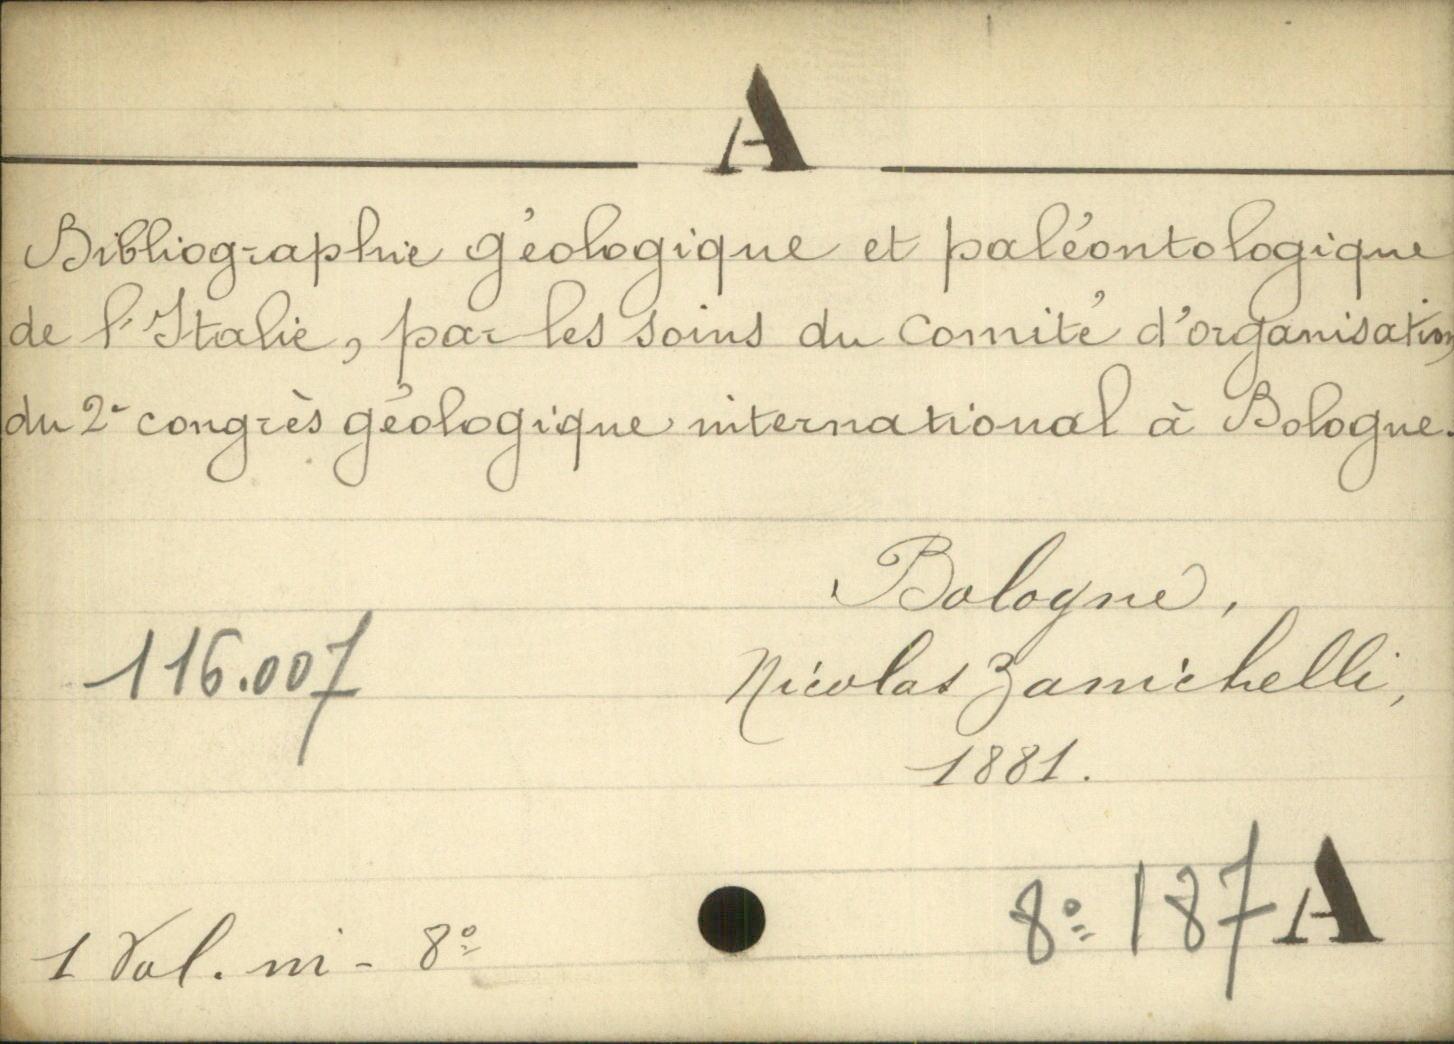 A
Bibliographie géologique et paléontologique
de l'Italie, par les soins du Comité d'organisation
du 2e congrès géologique international à Bologne.
Bologne,
116.007
Nicolas Zanichelli,
1881.
8º 187 A
1 Vol. in-8º